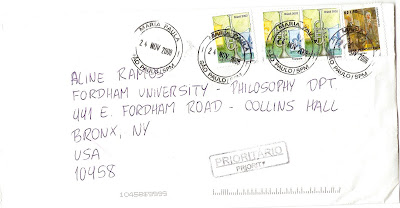 MARIA PAULA
24 NOV 2008
SÃO PAULO/SPM
MARIA PAULA
24 NOV 2008
SÃO PAULO/SPM
MARIA PAULA
24 NOV
SÃO PAULO/SPM
2008
SÃO PAULO/SPM
ALINE
FORDHAM UNIVERSITY - PHILOSOPHY DPT.
441 E. FORDHAM ROAD - COLLINS HALL
BRONX, NY
USA
10458
PRIORITÁRIO
PRIORITY
1045849995